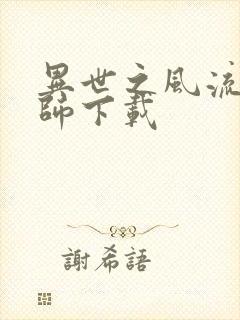 異世之風流
師下載
謝希語